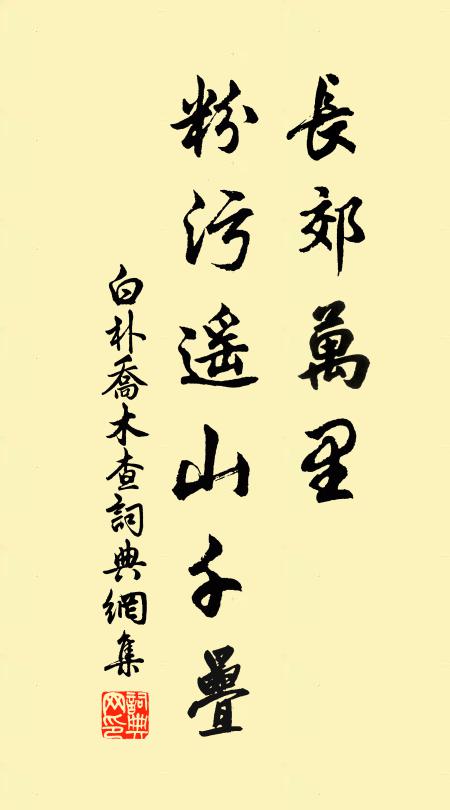 長郊萬里
粉污遥山千疊
白朴喬木查詞典網集
詞典网印